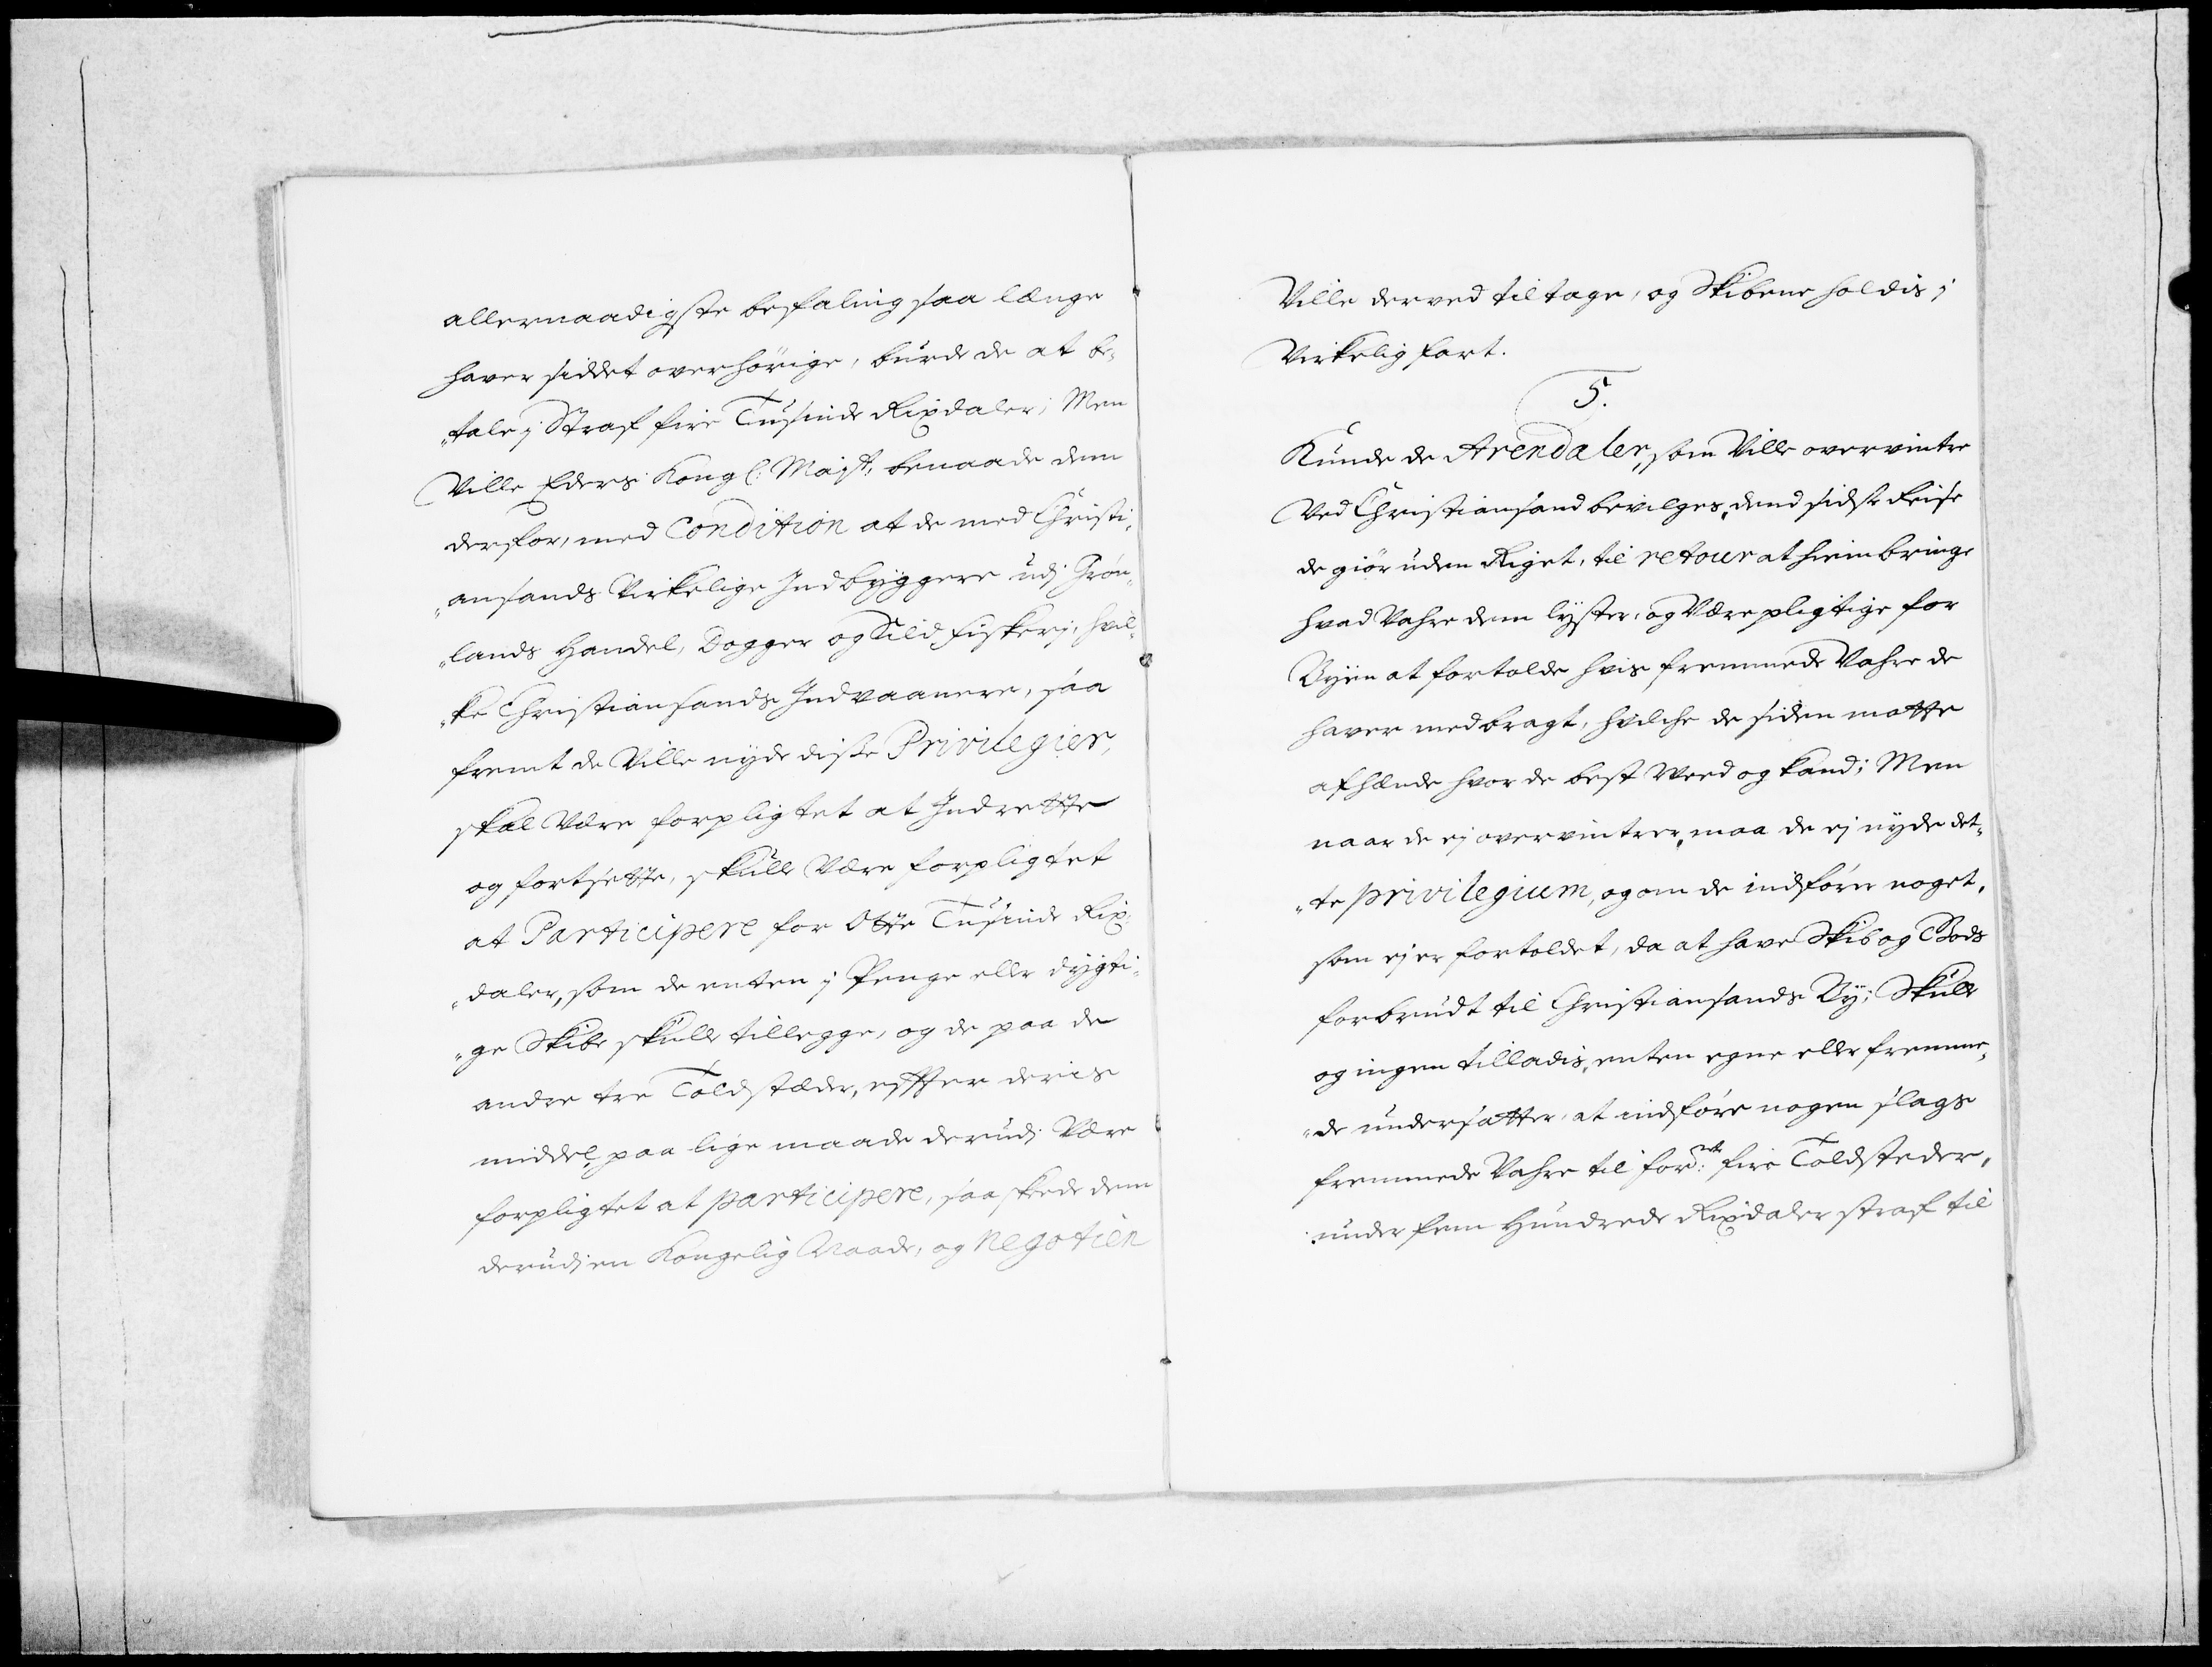 allernaadigste befaling saa længe
hafver siddet overhörige, burde de at be¬
„tale j Straf fire Tusinde Rixdaler; Men
Ville Eders Kongl: Majst, benaade dem
derfor, med Condition at de med Christi¬
„ansands Virkelige Indbyggere udj Grön¬
„lands Handel, Dogger og Sild fiskerj, hvil¬
„ke Christiansands Indvaanere, saa
fremt de Ville nyde disse Privilegier,
skal Være forpligtet at Indrette
og fortsette, skulle Være forpligtet
at Participere for Otte Tusinde Rix¬
„daler, som de enten j Penge eller dygti¬
„ge Skibe skulle tillegge, og de paa de
andre tre Toldstæder, effter deris
middel, paa lige maade derudj Være
forpligtet at participere, saa skede dem
derudj en Kongelig Naade, og Negotien
Ville derved tiltage, og Skibene holdis j
Virkelig fart.
5.
Kunde de Arendaler, som Ville overvintre
Ved Christiansand bevilges, dend sidste Reise
de giör uden Riget, til retour at hiembringe
hvad Vahre dem lyster, og Være pligtige for
Byen at fortolde hvis fremmede Vahre de
haver medbragt, hvilche de siden motte
afhænde hvor de best Veed og kand; Men
naar de ej overvintrer, maa de ej nyde det¬
„te privilegium, og om de indförer noget,
som ej er fortoldet, da at have Skib og Gods
forbrudt til Christiansands By; Skulle
og ingen tilladis, enten egne eller fremme¬
„de undersatter, at indföre nogen slags
fremmede Vahre til for:nte fire Toldsteder,
under fem Hundrede Rixdaler straf til